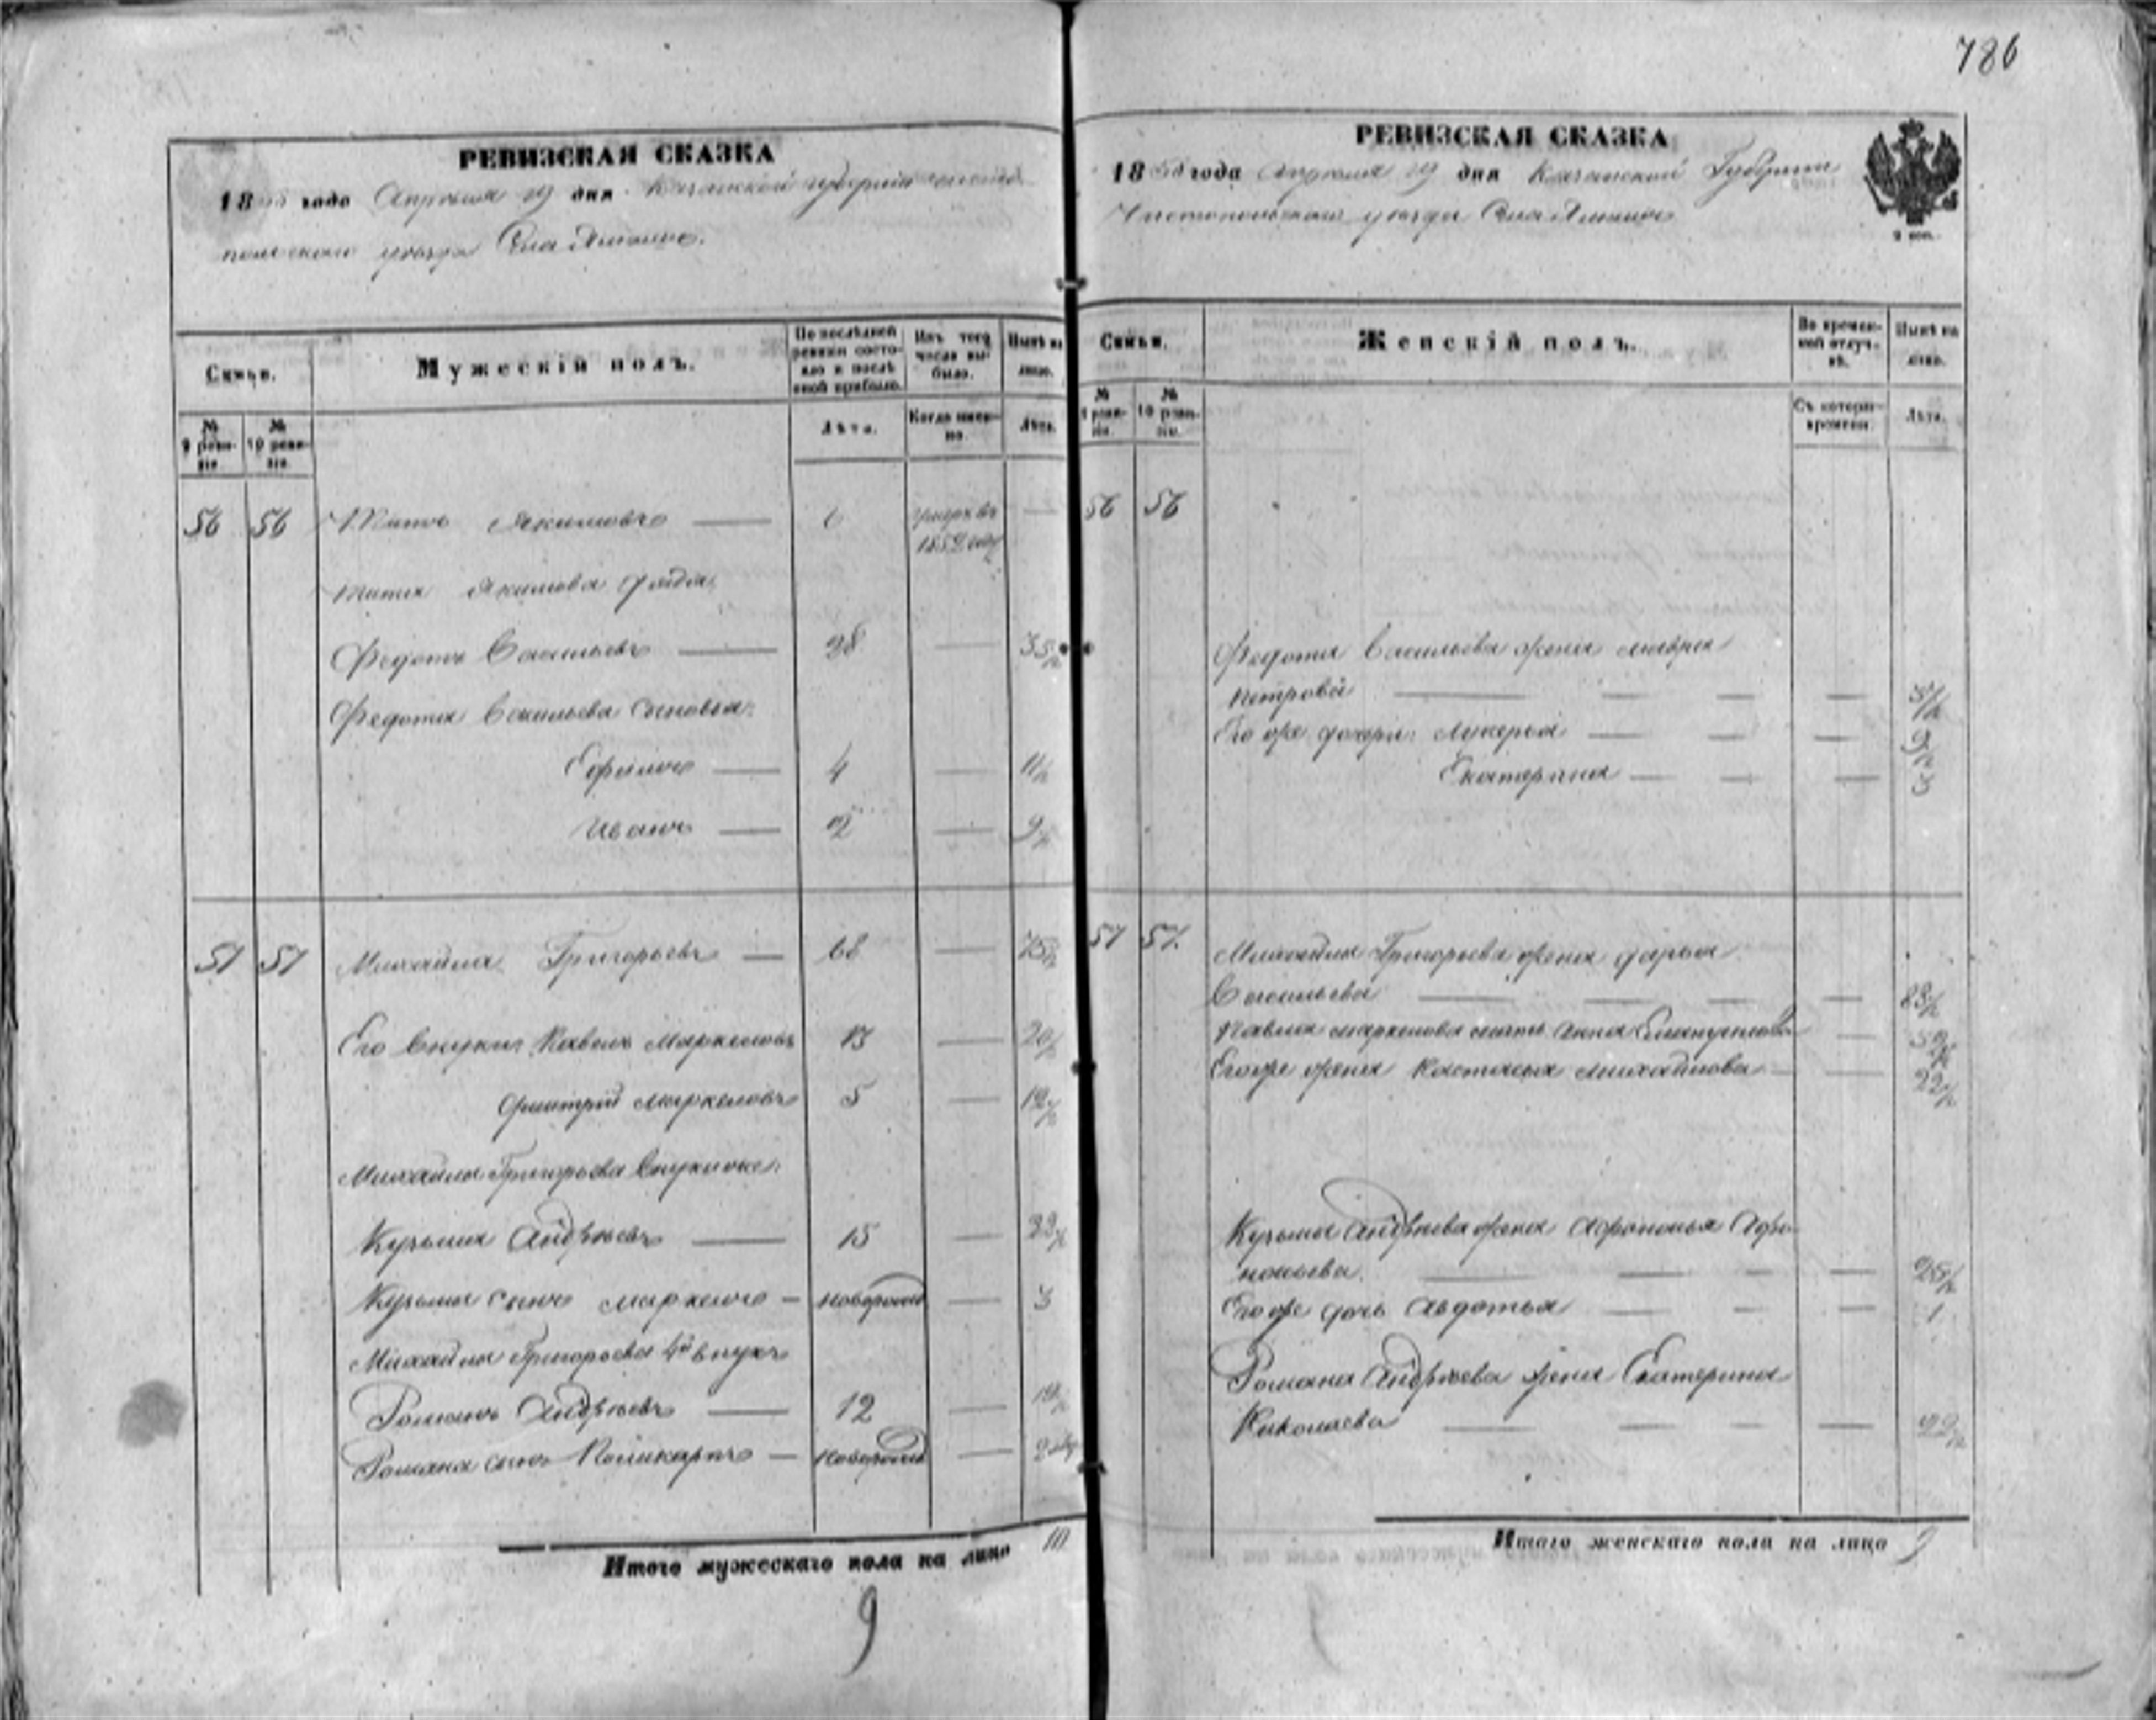 786
РЕВИЗСКАЯ СКАЗКА
18 года Апреля 19 дня Казанской губернии Чисто-
польскаго уезда Села
Семьи.
Мужескій полъ.
По последней ревизіи состояло и после оной прибыло.
Изъ того числа выбыло.
Ныне на лицо.
№ 9 ревизіи.
№ 10 ревизіи.
Лета.
Когда именно.
Лета.
56 56 Титъ Якимовъ — 6 умеръ въ —
1852 году
Тита Якимова дядя
Федотъ Васильевъ — 28 — 35½
Федота Васильева сыновья:
Ефимъ — 4 — 11½
Иванъ — 2 — 9½
57 57 Михайла Григорьевъ — 68 — 75½
Его внуки: Павелъ Маркеловъ 13 — 20½
Дмитрій Маркеловъ 5 — 12½
Михайлы Григорьева внуки же:
Кузьма Андреевъ — 15 — 22½
Кузьмы сынъ Маркелъ — новорожд — 3
Михайлы Григорьева 4й внукъ
Романъ Андреевъ — 12 — 19½
Романа сынъ Поликарпъ — новорожд — 2
Итого мужескаго пола на лицо 10
9
РЕВИЗСКАЯ СКАЗКА
18 года Апреля 19 дня Казанской Губерніи
Чистопольскаго уезда Села
2 коп.
Семьи.
Женскій полъ.
Во временной отлучке.
Ныне на лицо.
№ 9 ревизіи.
№ 10 ревизіи.
Съ котораго времени.
Лета.
56 56
Федота Васильева жена Мавра
Петрова — — — —
Его же дочери: Лукерья — — — 9½
Екатерина — — — 3
57 57. Михайлы Григорьева жена Дарья
Васильева — — — — 63½
Павла Маркелова мать Анна —
Его же жена Настасья Михайлова — — 22½
Кузьмы Андреева жена Афимья Афо-
насьева. — — — — 25½
Его же дочь Авдотья — — — 1
Романа Андреева жена Екатерина
Николаева — — — — 22½
Итого женскаго пола на лицо 9